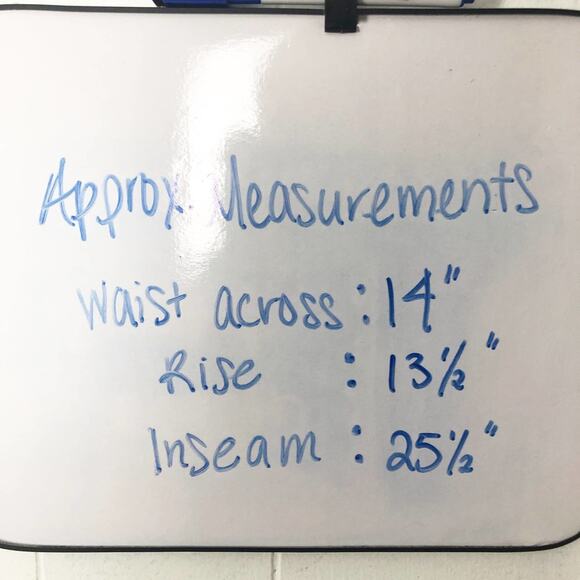 Approx. Measurements
Waist across : 14"
Rise : 13½"
Inseam : 25½"